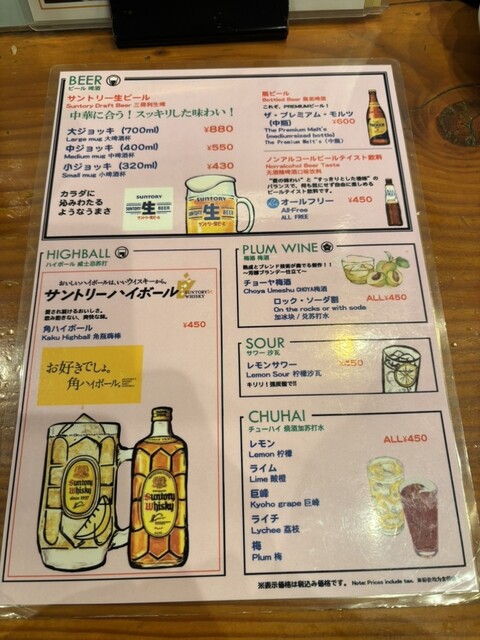 BEER
ビール 啤酒
サントリー生ビール
Suntory Draft Beer 三得利生啤
中華に合う！スッキリした味わい！
大ジョッキ (700ml) ¥880
Large mug 大啤酒杯
中ジョッキ (400ml) ¥550
Medium mug 中啤酒杯
小ジョッキ (320ml) ¥430
Small mug 小啤酒杯
カラダに
沁みわたる
ようなうまさ
SUNTORY
生
SUNTORY
生
瓶ビール
これぞ、PREMIUMビール！
ザ・プレミアム・モルツ
(中瓶) ¥600
The Premium Malt's
(medium-sized bottle)
The Premium Malt's (中瓶)
ノンアルコールビールテイスト飲料
Nonalcohol Beer Taste
オールフリー ¥450
All-Free
ALL FREE
HIGHBALL
ハイボール 威士忌苏打
おいしいハイボールは、いいウイスキーから。
サントリーハイボール
SUNTORY
WHISKY
愛され続けるおいしさ。
飲み飽きない、爽快な味。
¥450
角ハイボール
Kaku Highball 角瓶嗨棒
お好きでしょ。
角ハイボール。
Suntory
Whisky
Suntory
Whisky
PLUM WINE
梅酒 梅酒
熟成とブレンド技術が奏でる傑作！！
～芳醇ブランデー仕立て～
チョーヤ梅酒
Choya Umeshu CHOYA梅酒
ロック・ソーダ割 ALL¥450
On the rocks or with soda
加冰块 / 兑苏打水
SOUR
サワー 沙瓦
レモンサワー ¥450
Lemon Sour 柠檬沙瓦
キリリ！強炭酸で!!
CHUHAI
チューハイ 烧酒加苏打水
レモン ALL¥450
Lemon 柠檬
ライム
Lime 酸橙
巨峰
Kyoho grape 巨峰
ライチ
Lychee 荔枝
梅
Plum 梅
※表示価格は税込み価格です。 Note: Prices include tax.